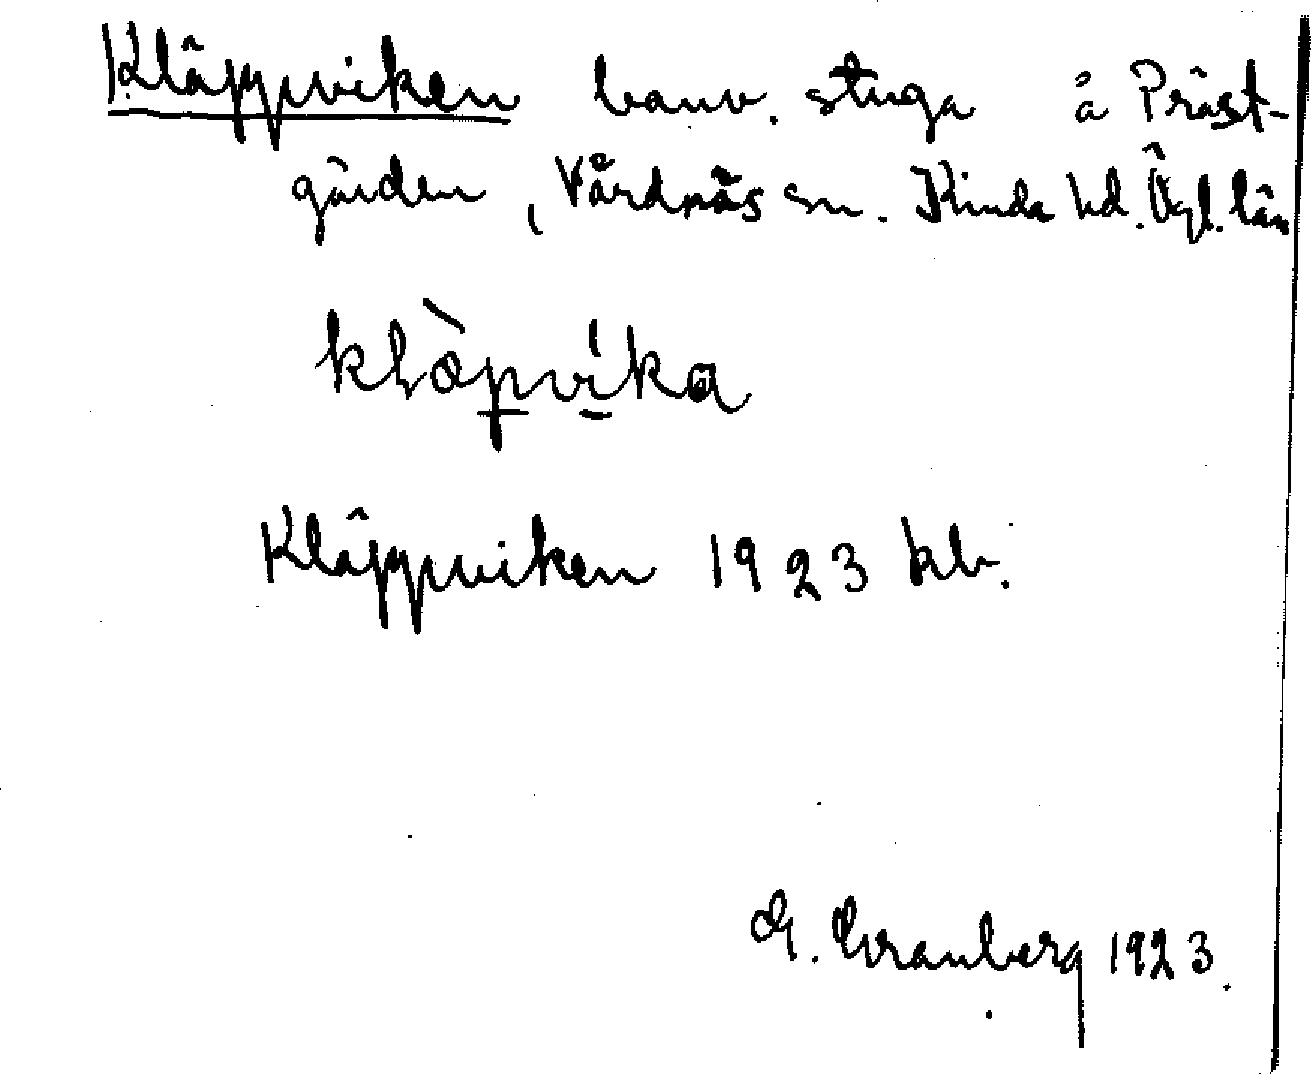 Kläppviken banv. stuga å Präst-
gården, Vårdnäs sn. Kinda hd. Ögl. län
klàpvika
Kläppviken 1923 kb.
G. Granberg 1923.